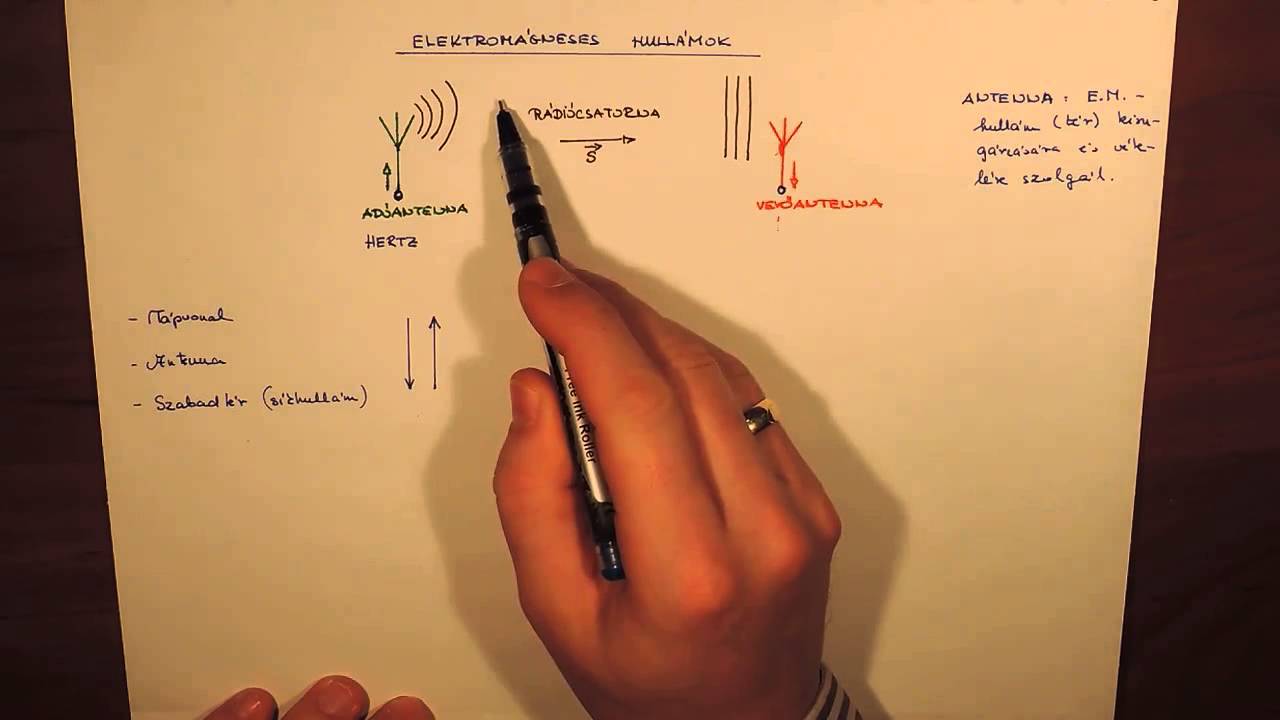 ELEKTROMÁGNESES HULLÁMOK
RÁDIÓCSATORNA
S
ADÓANTENNA
HERTZ
VEVŐANTENNA
ANTENNA: E.M.-
hullám (tér) kisu-
gárzására és véte-
lére szolgál.
- Tápvonal
- Antenna
- Szabad tér (síkhullám)
Free Ink Roller